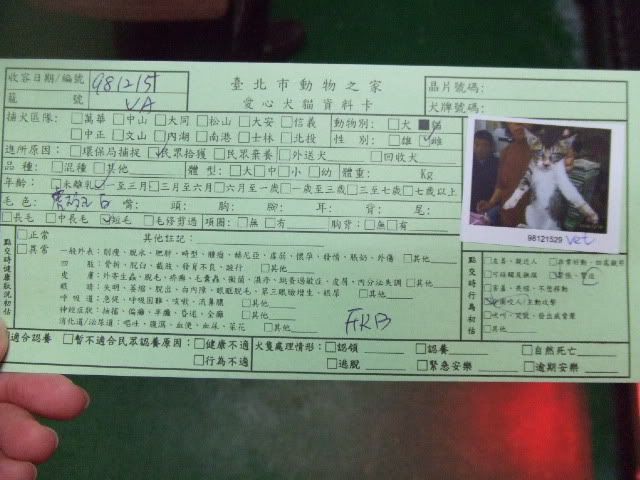 收容日期/編號 981215
臺北市動物之家
晶片號碼:
籠 號 VA
愛心犬貓資料卡
犬牌號碼:
捕犬區隊: □萬華 □中山 □大同 □松山 □大安 □信義
動物別: □犬 ■貓
□中正 □文山 □內湖 □南港 □士林 □北投
性 別: □雄 ☑雌
進所原因: □環保局捕捉 ☑民眾拾獲 □民眾棄養 □外送犬 □回收犬
品 種: □混種 □其他
體 型: □大 □中 □小 □幼 體重: Kg
年齡: □未離乳 ☑一至三月 □三月至六月 □六月至一歲 □一歲至三歲 □三至七歲 □七歲以上
毛 色: 白 嘴: 頭: 胸: 腳: 耳: 背: 尾:
□長毛 □中長毛 ☑短毛 □毛修剪過 項圈: □無 □有 胸背: □無 □有
點交時健康狀況初估
□正常
□異常
其他註記:
一般外表: 削瘦、脫水、肥胖、畸型、腫瘤、赫尼亞、虛弱、懷孕、發情、脹奶、外傷 □其他
四 肢: 骨折、脫臼、截肢、發育不良、跛行 □其他
皮 膚: 外寄生蟲、脫毛、疥癬、毛囊蟲、黴菌、濕疹、跳蚤過敏症、皮屑、內分泌失調 □其他
眼 睛: 失明、萎縮、脫出、白內障、眼瞼脫毛、第三眼瞼增生、眼屎 □其他
呼 吸 道: 急促、呼吸困難、咳嗽、流鼻膿 □其他
神經症狀: 抽搐、偏癱、半癱、昏迷、全癱 □其他
消化道/泌尿道: 嘔吐、腹瀉、血便、血尿、菜花 □其他
FKB
98121529 vet
點交時行為初估
□友善、親近人 □非常好動、四處觀察
□可碰觸及撫摸 □緊張、警戒
□害羞、畏縮、不想移動
咬人/主動攻擊
□吠叫、咬聲、發出威脅聲
□其他
□適合認養 □暫不適合民眾認養原因: □健康不適
□行為不適
犬隻處理情形: □認領 □認養 □自然死亡
□逃脫 □緊急安樂 □逾期安樂